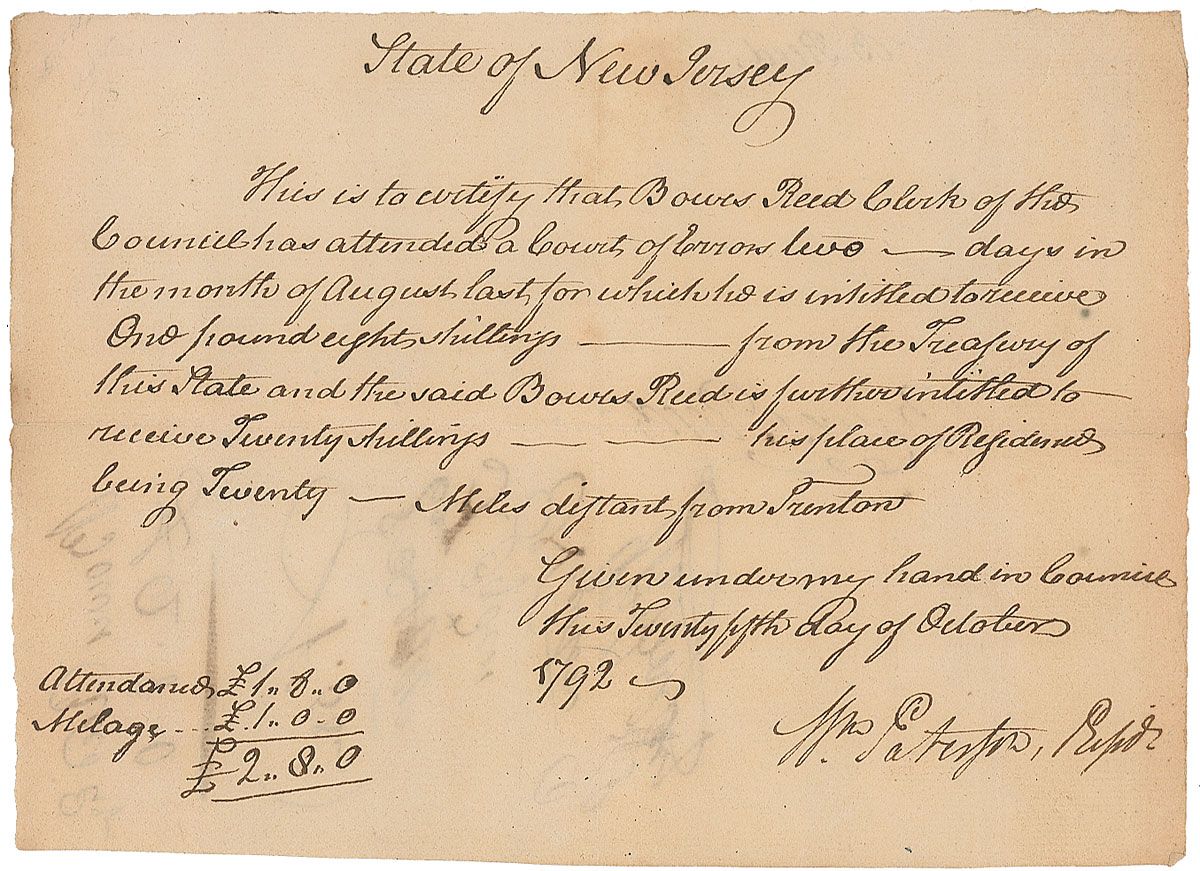 State of New Jersey
This is to certify that Bowes Reed Clerk of the
Council has attended a Court of Errors two — days in
the month of August last for which he is intitled to receive
One pound eight shillings — from the Treasury of
this State and the said Bowes Reed is further intitled to
receive Twenty shillings — — — his place of Residence
being Twenty — Miles distant from Trenton
Given under my hand in Council
this Twenty fifth day of October
1792
Attendance £1.. 8.. 0
Milage - .. £.1.. 0 - 0
£2.. 8.. 0
Wm. Paterson, Presidt.